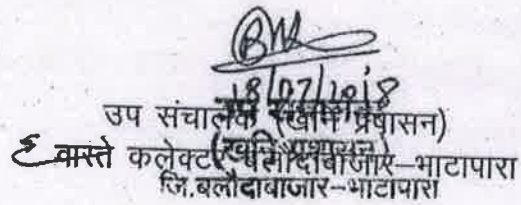 18/07/2018
उप संचालक (खनि प्रशासन)
वास्ते कलेक्टर बलौदाबाजार-भाटापारा
जि.बलौदाबाजार-भाटापारा